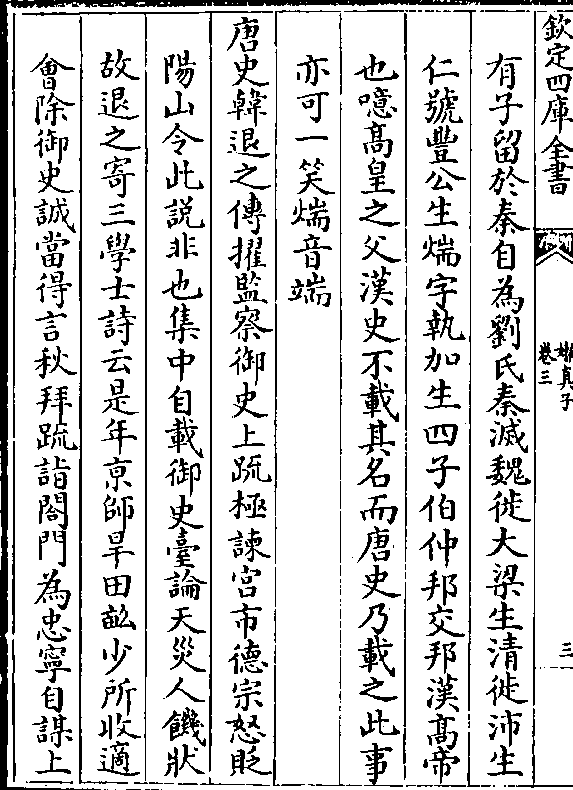 欽定四庫全書
嬾真子
卷三
三
有子留於秦自為劉氏秦滅魏徙大梁生清徙沛生
仁號豐公生煓字執加生四子伯仲邦交邦漢髙帝
也噫髙皇之父漢史不載其名而唐史乃載之此事
亦可一笑煓音端
唐史韓退之傳擢監察御史上疏極諫宫市德宗怒貶
陽山令此說非也集中自載御史臺論天災人饑狀
故退之寄三學士詩云是年京師旱田畝少所收適
會除御史誠當得言秋拜疏詣閤門為忠寧自謀上